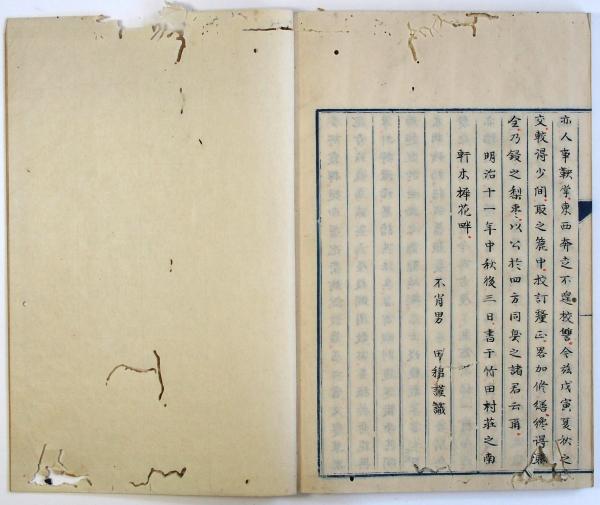 亦人事鞅掌東西奔走不遑校讐今玆戊寅夏秋之
交較得少間取之簏中校訂釐正畧加修繕纔得
全乃鋟之梨枣以公於四方同臭之諸君云爾
明治十一年中秋後三日書于竹田村莊之南
軒木犀花畔
不肖男 謹識